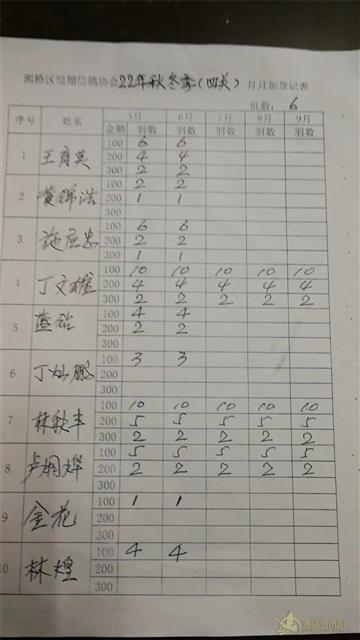 湘桥区恒翔信鸽协会22年秋冬季(四关)月月加登记表
页数: 6
序号 姓名 5月 6月 7月 8月 9月
金额 羽数 羽数 羽数 羽数 羽数
1 王育英 100 6 6
200 4 4
300 2 2
2 黄锦浩 100 2 2
200 1 1
300
3 施应忠 100 6 6
200 2 2
300 1 1
4 丁文雄 100 10 10 10 10 10
200 4 4 4 4 4
300 2 2 2 2 2
5 100 4 4
200 2 2
300
6 丁灿鹏 100 3 3
200
300
7 林秋丰 100 10 10 10 10 10
200 5 5 5 5 5
300 2 2 2 2 2
8 卢炯烨 100 5 5 5 5 5
200 2 2 2 2 2
300
9 金花 100 1 1
200
300
10 林煌 100 4 4
200
300